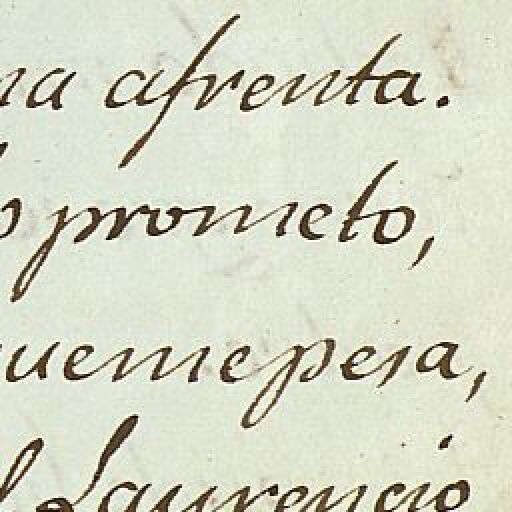 na afrenta.
prometo,
uemepesa,
Laurencio